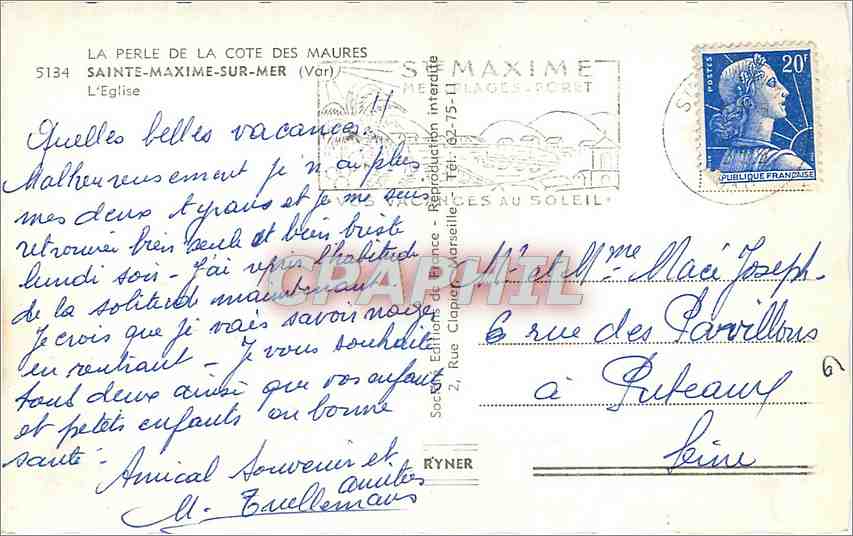 LA PERLE DE LA COTE DES MAURES
5134 SAINTE-MAXIME-SUR-MER (Var)
L'Eglise
Quelles belles vacances.
Malheureusement je n'ai plus
mes deux tyrans et je me suis
retrouvée bien seule et bien triste
lundi soir - J'ai repris l'habitude
de la solitude maintenant
Je crois que je vais savoir nager
en rentrant - Je vous souhaite
tous deux ainsi que vos enfants
et petits enfants en bonne
santé -
Amical Souvenir et
amitiés
M.
STE MAXIME
MER-PLAGES-FORET
VOS VACANCES AU SOLEIL
Société Editions de France - Reproduction interdite
2, Rue Clapier, Marseille - Tél. 62-75-11
RYNER
CPARAPHIL
POSTES
20F
REPUBLIQUE FRANÇAISE
Mr et Mme Macé Joseph
6 rue des Pavillons
à Puteaux
Seine